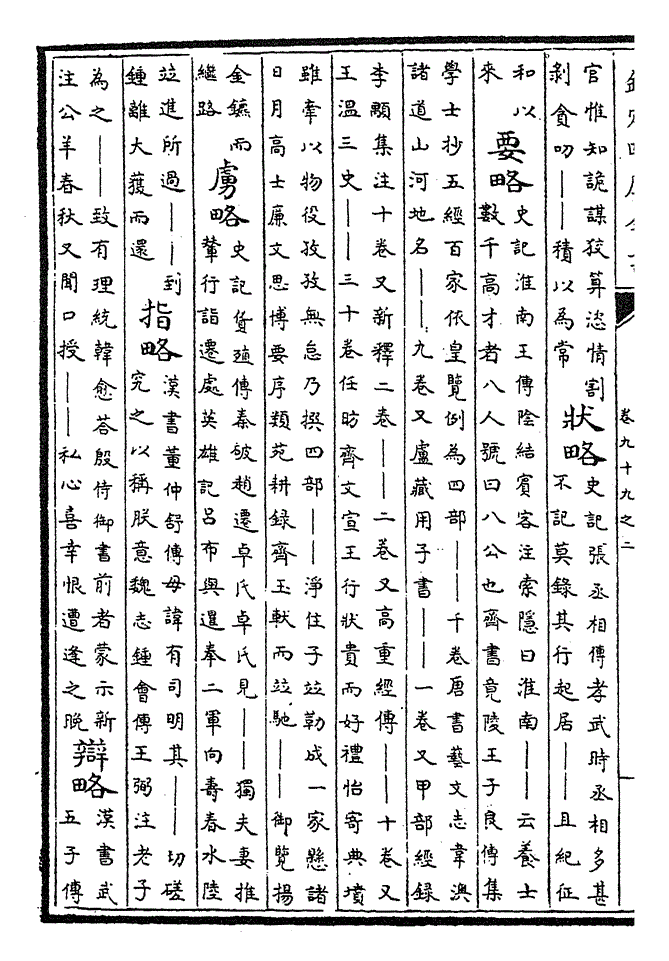 卷九十九之二
官惟知詭謀狡算恣情割
剝貪叨——積以為常
狀略
史記張丞相傳孝武時丞相多甚
不記莫錄其行起居——且紀征
和以
來
要略
史記淮南王傳陰結賓客注索隱曰淮南——云養士
數千高才者八人號曰八公也齊書竟陵王子良傳集
學士抄五經百家依皇覽例為四部——千卷唐書藝文志韋澳
諸道山河地名——九卷又盧藏用子書——一卷又甲部經錄
李顒集注十卷又新釋二卷——二卷又高重經傳——十卷又
王溫三史——三十卷任昉齊文宣王行狀貴而好禮怡寄典墳
雖牽以物役孜孜無怠乃撰四部——淨住子竝勒成一家懸諸
日月高士廉文思博要序類苑耕録齊玉軑而竝馳——御覽揚
金鑣而
繼路
虜略
史記貨殖傳秦破趙遷卓氏卓氏見——獨夫妻推
輦行詣遷處英雄記呂布與暹奉二軍向壽春水陸
竝進所過——到
鍾離大獲而還
指略
漢書董仲舒傳毋諱有司明其——切磋
究之以稱朕意魏志鍾會傳王弼注老子
為之——致有理統韓愈荅殷侍御書前者蒙示新
注公羊春秋又聞口授——私心喜幸恨遭逢之晚
辯略
漢書武
五子傳